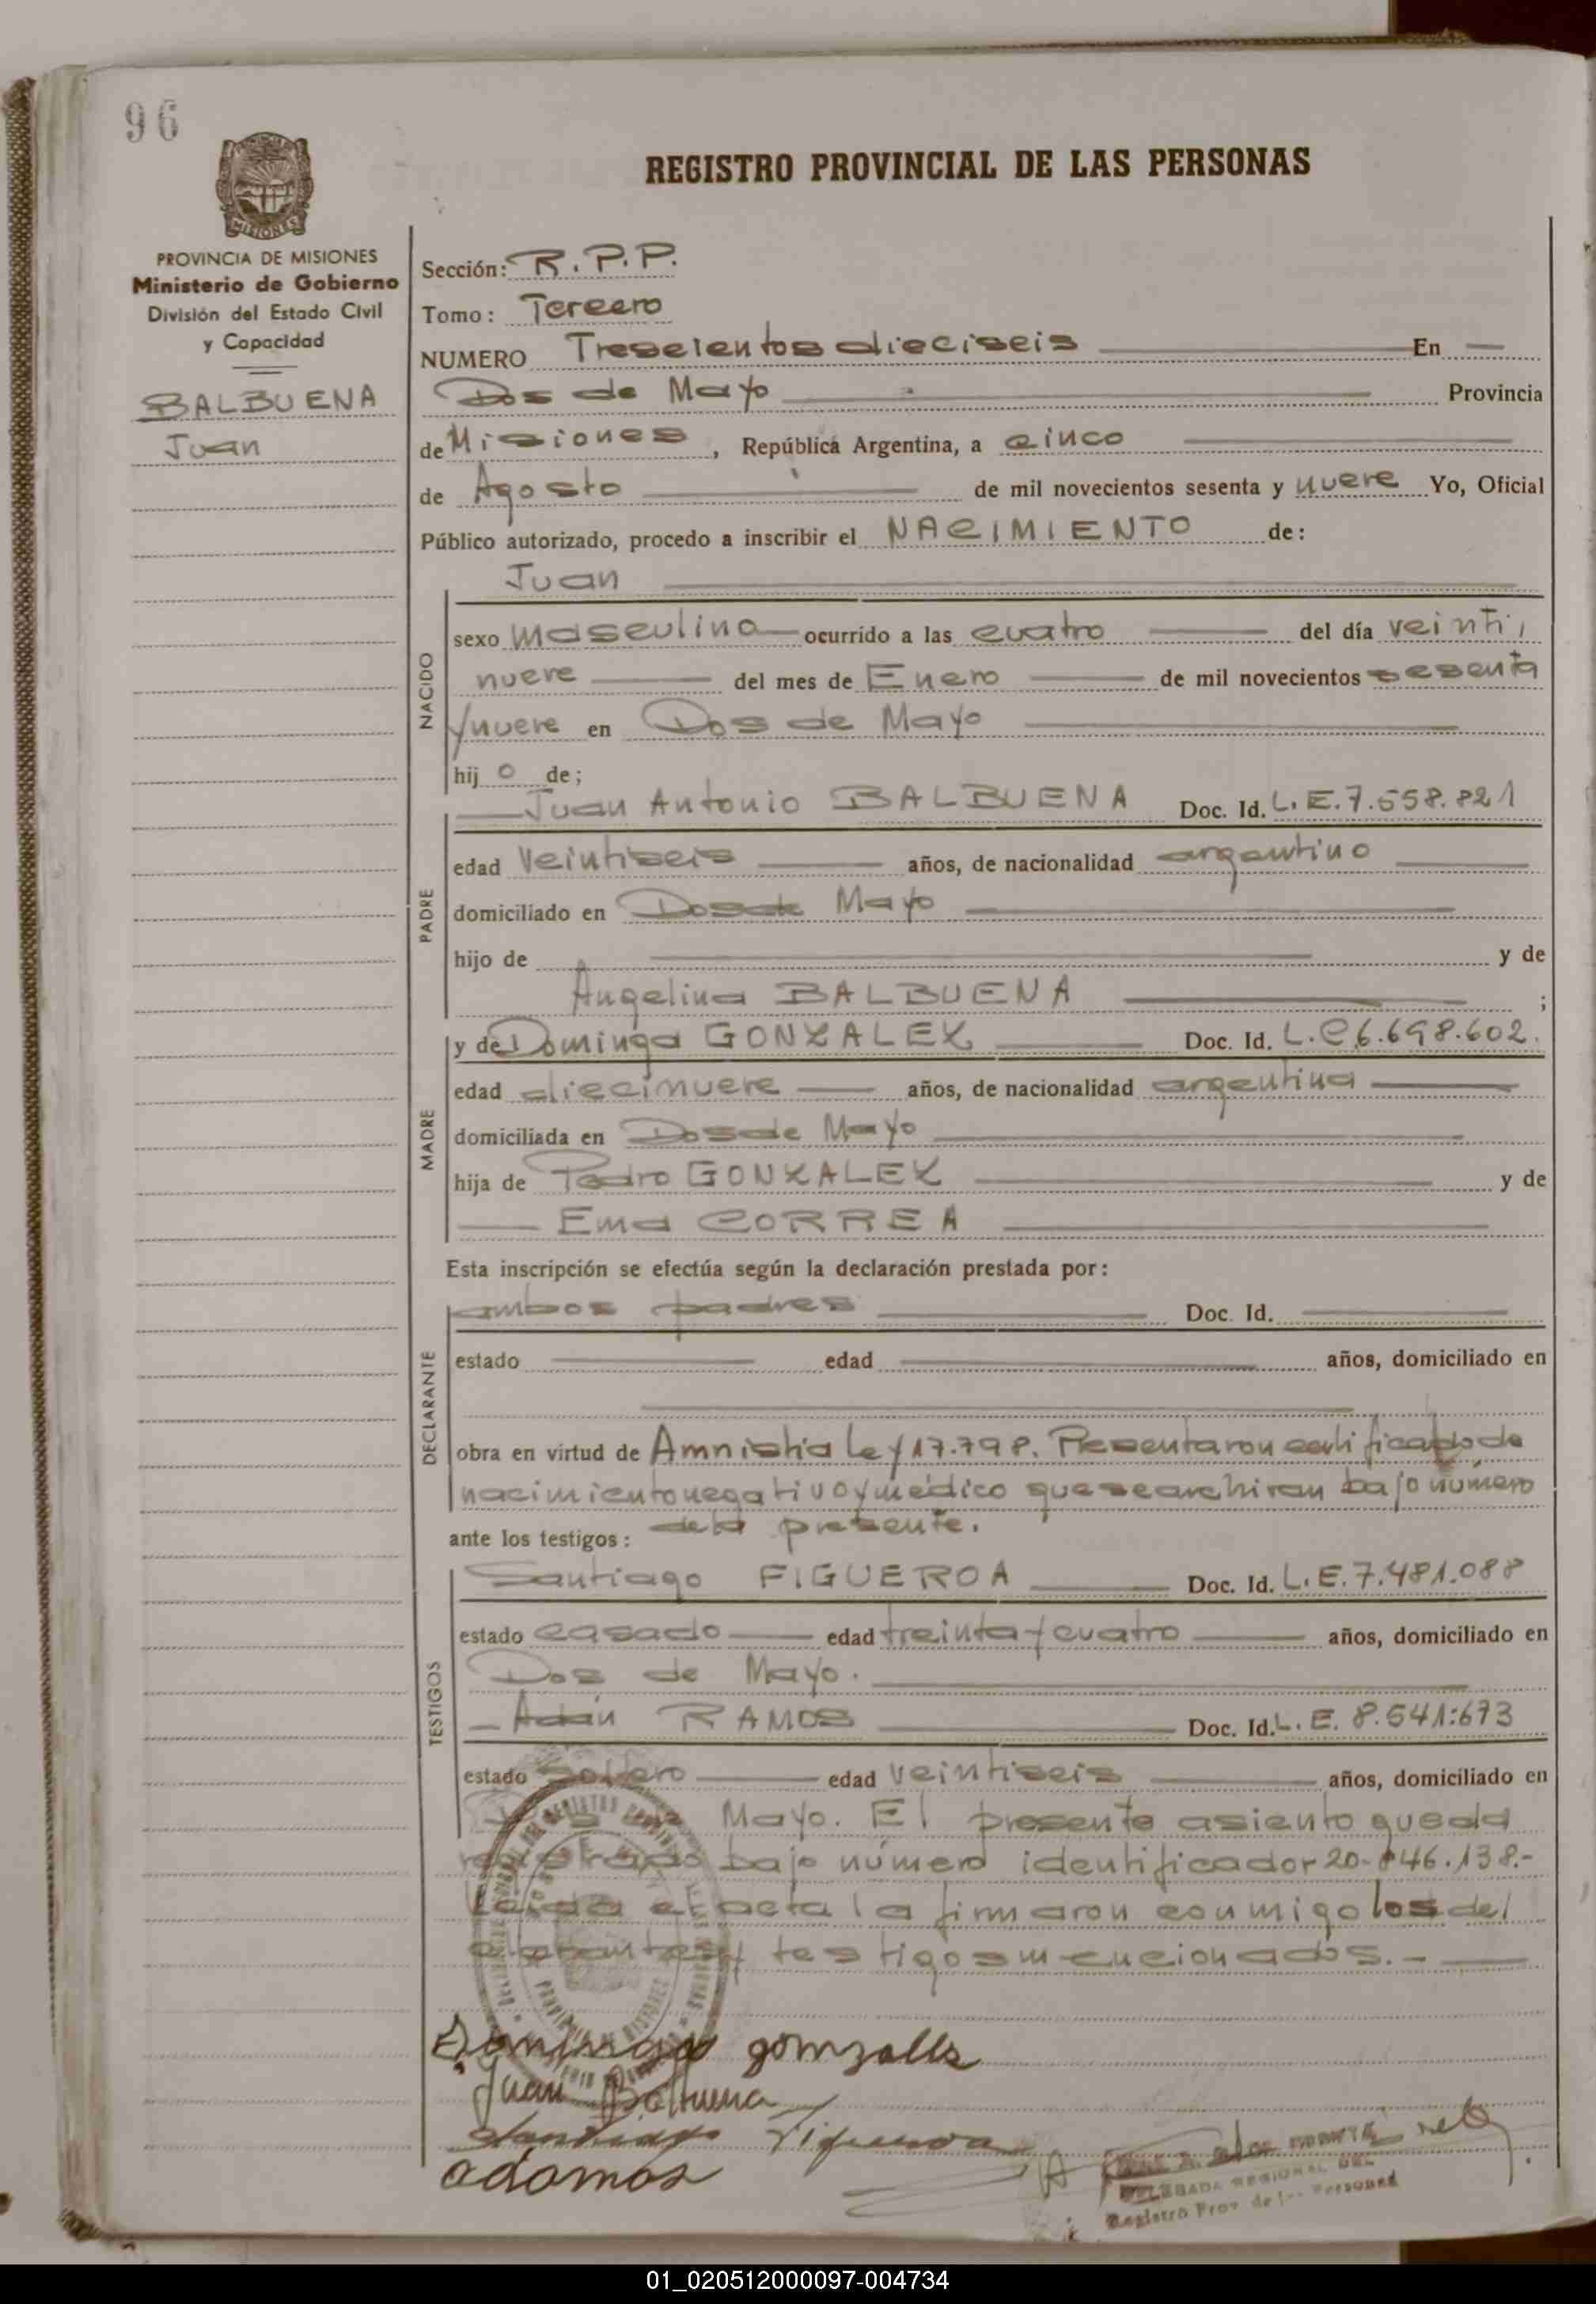 96
REGISTRO PROVINCIAL DE LAS PERSONAS
MISIONES
PROVINCIA DE MISIONES
Ministerio de Gobierno
División del Estado Civil
y Capacidad
BALBUENA
Juan
Sección: R.P.P.
Tomo: Tercero
NUMERO Trescientos dieciseis En
Dos de Mayo Provincia
de Misiones, República Argentina, a cinco
de Agosto de mil novecientos sesenta y nueve Yo, Oficial
Público autorizado, procedo a inscribir el NACIMIENTO de:
Juan
NACIDO
sexo masculino ocurrido a las cuatro del día veinti
nueve del mes de Enero de mil novecientos sesenta
y nueve en Dos de Mayo
hijo de;
PADRE
Juan Antonio BALBUENA Doc. Id. L.E.7.558.821
edad veintiseis años, de nacionalidad argentino
domiciliado en Dos de Mayo
hijo de y de
Angelina BALBUENA ;
MADRE
y de Dominga GONZALEZ Doc. Id. L.C.6.698.602.
edad diecinueve años, de nacionalidad argentina
domiciliada en Dos de Mayo
hija de Pedro GONZALEZ y de
Ema CORREA
Esta inscripción se efectúa según la declaración prestada por:
DECLARANTE
ambos padres Doc. Id.
estado edad años, domiciliado en
obra en virtud de Amnistia Ley 17.798. Presentaron certificado de
nacimiento negativo y médico que se archivan bajo número
ante los testigos: de la presente.
TESTIGOS
Santiago FIGUEROA Doc. Id. L.E.7.481.088
estado casado edad treinta y cuatro años, domiciliado en
Dos de Mayo.
Adán RAMOS Doc. Id. L.E. 8.541.673
estado soltero edad veintiseis años, domiciliado en
Dos de Mayo. El presente asiento queda
registrado bajo número identificador 20-846.138.-
Leida el acta la firmaron conmigo los del
clarantes y testigos mencionados.-
Dominga gonzalez
Juan Balbuena
Santiago Figueroa
DELEGADA REGIONAL DEL
Registro Prov. de las Personas
01_020512000097-004734